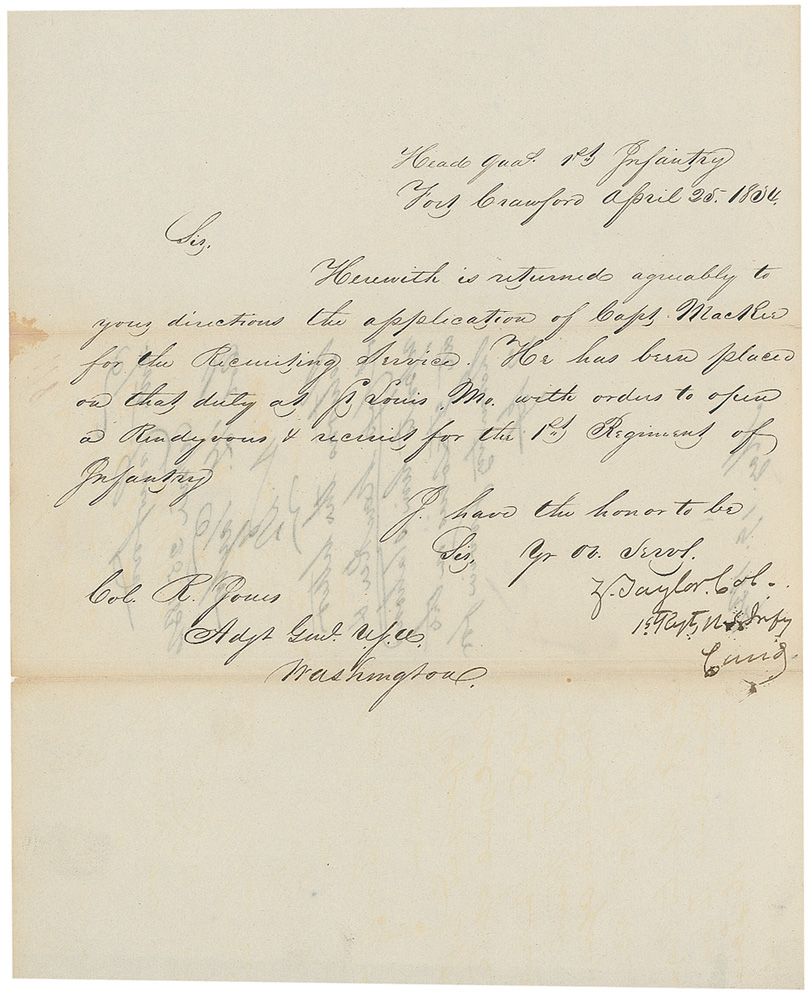 Head Qua. 1st Infantry
Fort Crawford April 25. 1834.
Sir,
Herewith is returned agreably to
your directions the application of Capt. MacRee
for the Recruiting Service. He has been placed
on that duty at St Louis Mo. with orders to open
a Rendezvous & recruit for the 1st Regiment of
Infantry
I have the honor to be
Sir, Yr Ob. Servt.
Z. Taylor. Col.
1st Regt U.S. Infy
Comdg
Col. R. Jones
Adjt Genl. U.S.A.
Washington.